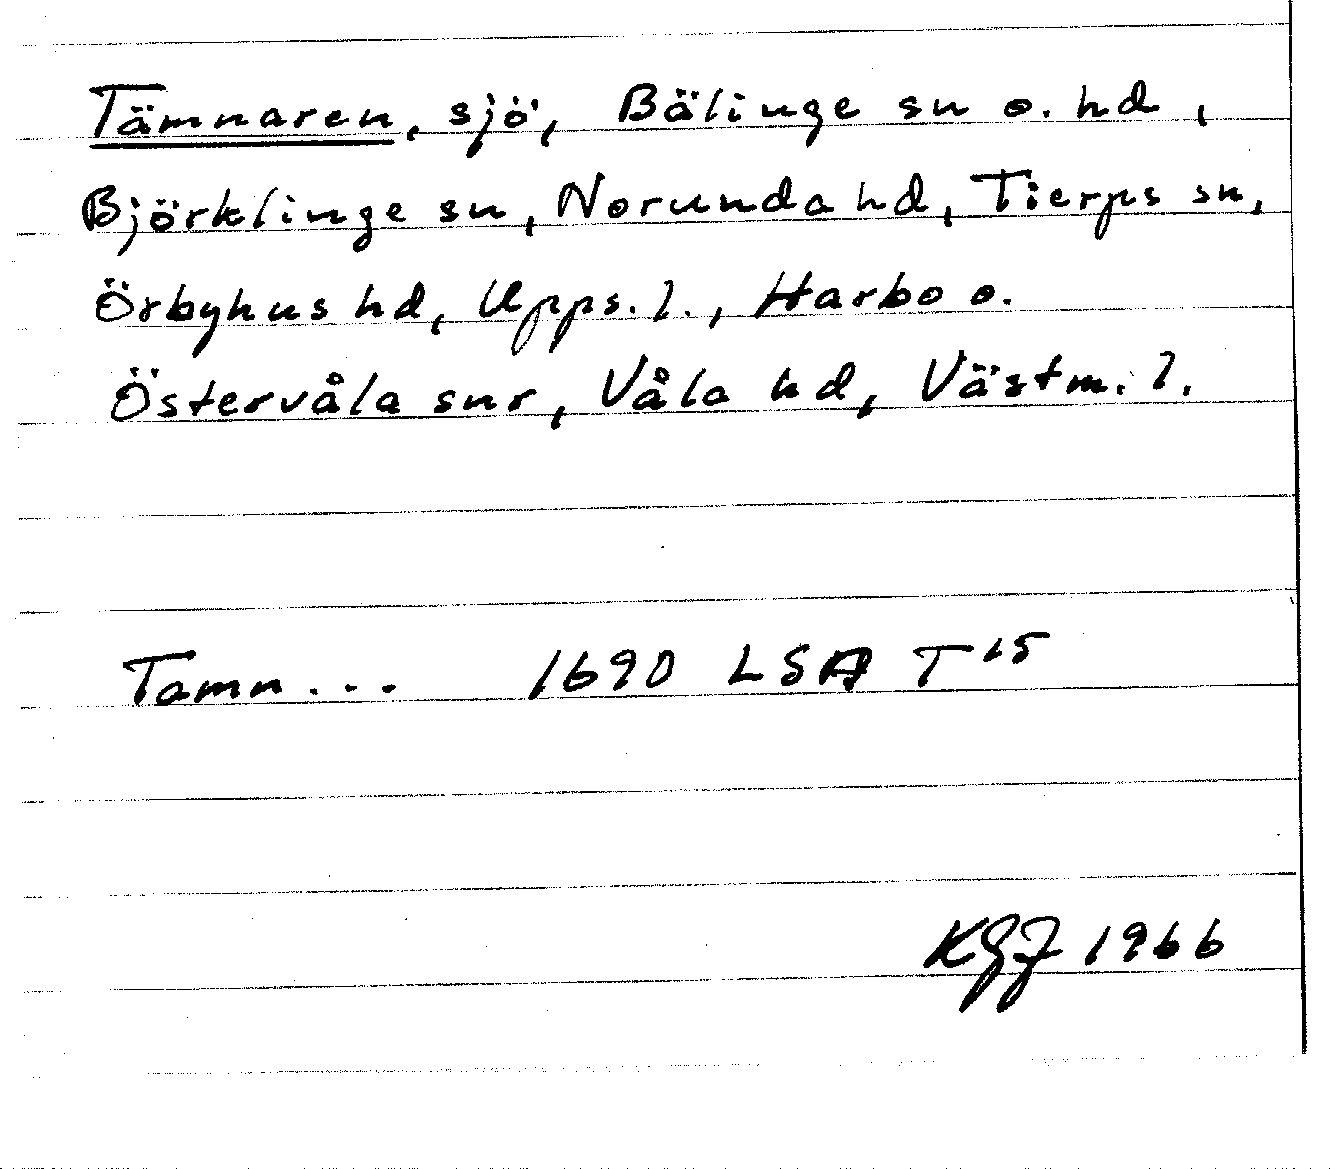 Tämnaren, sjö, Bälinge sn o. hd,
Björklinge sn, Norunda hd, Tierps sn,
Örbyhus hd, Upps. l., Harbo o.
Östervåla snr, Våla hd, Västm. l.
Tamn... 1690 LSA T 15
KGJ 1966